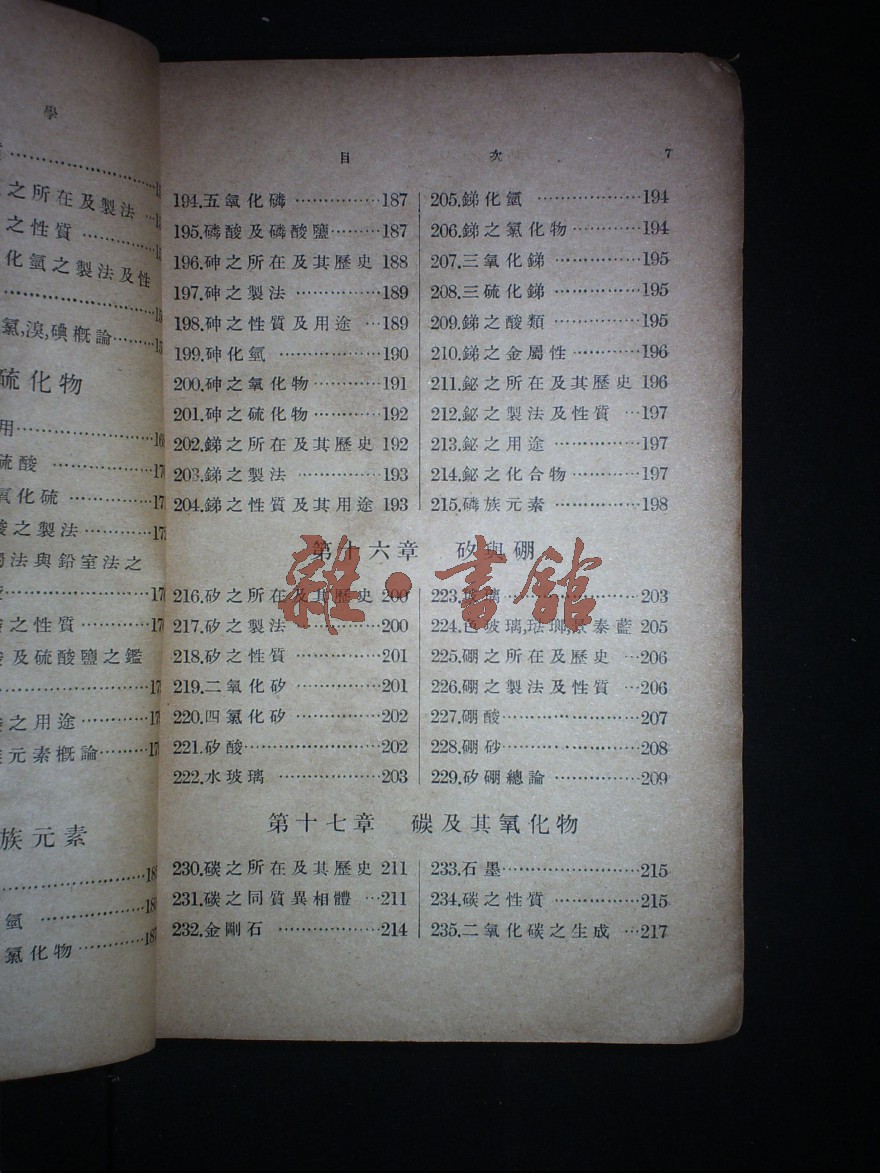 學
之所在及製法
之性質
化氫之製法及性
氯,溴,碘概論
硫化物
用
硫酸
氧化硫
之製法
法與鉛室法之
之性質
及硫酸鹽之鑑
之用途
元素概論
族元素
氫
氯化物
目次 7
194.五氧化磷 187
195.磷酸及磷酸鹽 187
196.砷之所在及其歷史 188
197.砷之製法 189
198.砷之性質及用途 189
199.砷化氫 190
200.砷之氧化物 191
201.砷之硫化物 192
202.銻之所在及其歷史 192
203.銻之製法 193
204.銻之性質及其用途 193
205.銻化氫 194
206.銻之氯化物 194
207.三氧化銻 195
208.三硫化銻 195
209.銻之酸類 195
210.銻之金屬性 196
211.鉍之所在及其歷史 196
212.鉍之製法及性質 197
213.鉍之用途 197
214.鉍之化合物 197
215.磷族元素 198
第十六章 矽與硼
216.矽之所在及其歷史 200
217.矽之製法 200
218.矽之性質 201
219.二氧化矽 201
220.四氯化矽 202
221.矽酸 202
222.水玻璃 203
223.玻璃 203
224.色玻璃,琺瑯,景泰藍 205
225.硼之所在及歷史 206
226.硼之製法及性質 206
227.硼酸 207
228.硼砂 208
229.矽硼總論 209
第十七章 碳及其氧化物
230.碳之所在及其歷史 211
231.碳之同質異相體 211
232.金剛石 214
233.石墨 215
234.碳之性質 215
235.二氧化碳之生成 217
雜·書館